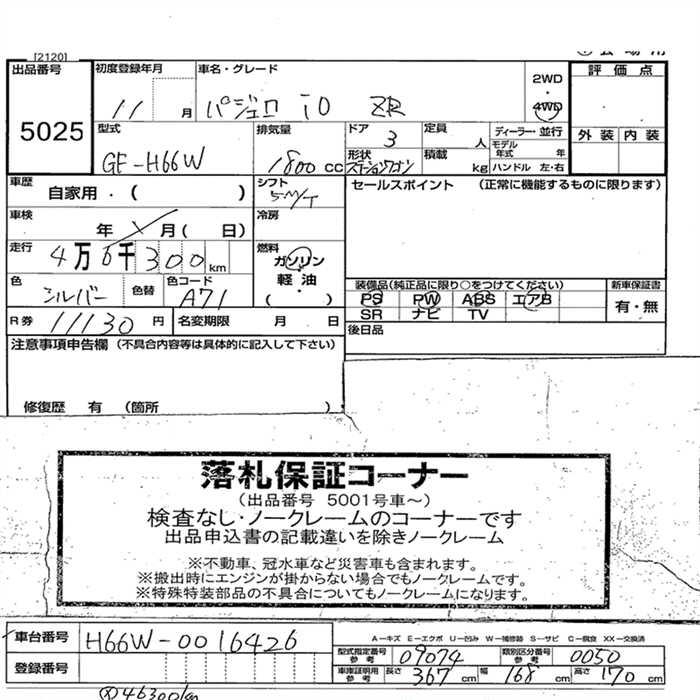 [2120]
出品番号 初度登録年月 車名・グレード 2WD 評価点
5025 11 月 パジェロ iO ZR ・ 4WD
型式 排気量 ドア 3 定員 人 ディーラー・並行 外装 内装
モデル年式 年
GF-H66W 1800 cc 形状 ステーションワゴン 積載 kg ハンドル 左・右
車歴 自家用・( ) シフト 5M/T セールスポイント (正常に機能するものに限ります)
車検 年 月( 日) 冷房
走行 4万6千300km 燃料 ガソリン
軽油
・
( )
色 シルバー 色替 色コード A71 装備品(純正品に限り○をつけてください) 新車保証書
PS PW ABS エアB 有・無
R券 11130 円 名変期限 月 日 SR ナビ TV
注意事項申告欄 (不具合内容等は具体的に記入して下さい) 後日品
修復歴 有 (箇所 )
落札保証コーナー
(出品番号 5001号車~)
検査なし・ノークレームのコーナーです
出品申込書の記載違いを除きノークレーム
※不動車、冠水車など災害車も含まれます。
※搬出時にエンジンが掛からない場合でもノークレームです。
※特殊特装部品の不具合についてもノークレームになります。
車台番号 H66W-0016426 A-キズ E-エクボ U-凹み W-補修跡 S-サビ C-腐食 XX-交換済
型式指定番号 参考 09074 類別区分番号 参考 0050
登録番号 車庫証明用 参考 長さ 367 cm 幅 168 cm 高さ 170 cm
46300km